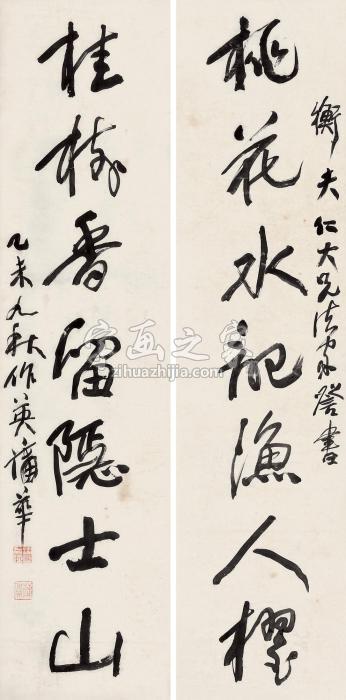 衡夫仁大兄法家誉書
桃花水記漁人櫂
桂樹香留隱士山
乙未九秋作英蒲華
字画之家
zihuazhijia.com